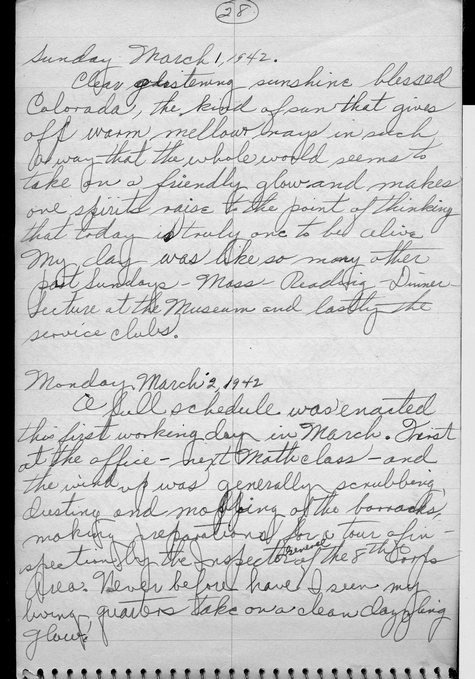 28
Sunday March 1, 1942.
Clear glistening sunshine blessed
Colorado, the kind of sun that gives
off warm mellow rays in such
a way that the whole world seems to
take on a friendly glow and makes
one spirits raise to the point of thinking
that today is truly one to be alive
My day was like so many other
past Sundays - Mass - Reading - Dinner -
Lecture at the Museum and lastly the
service clubs.
Monday March 2, 1942
A full schedule was enacted
this first working day in March. First
at the office - next Math class - and
the wind up was generally scrubbing
dusting and mopping of the barracks,
making preparations for a tour of in-
spection by the Inspector General of the 8th Corps
Area. Never before have I seen my
living quarters take on a clean dazzling
glow.